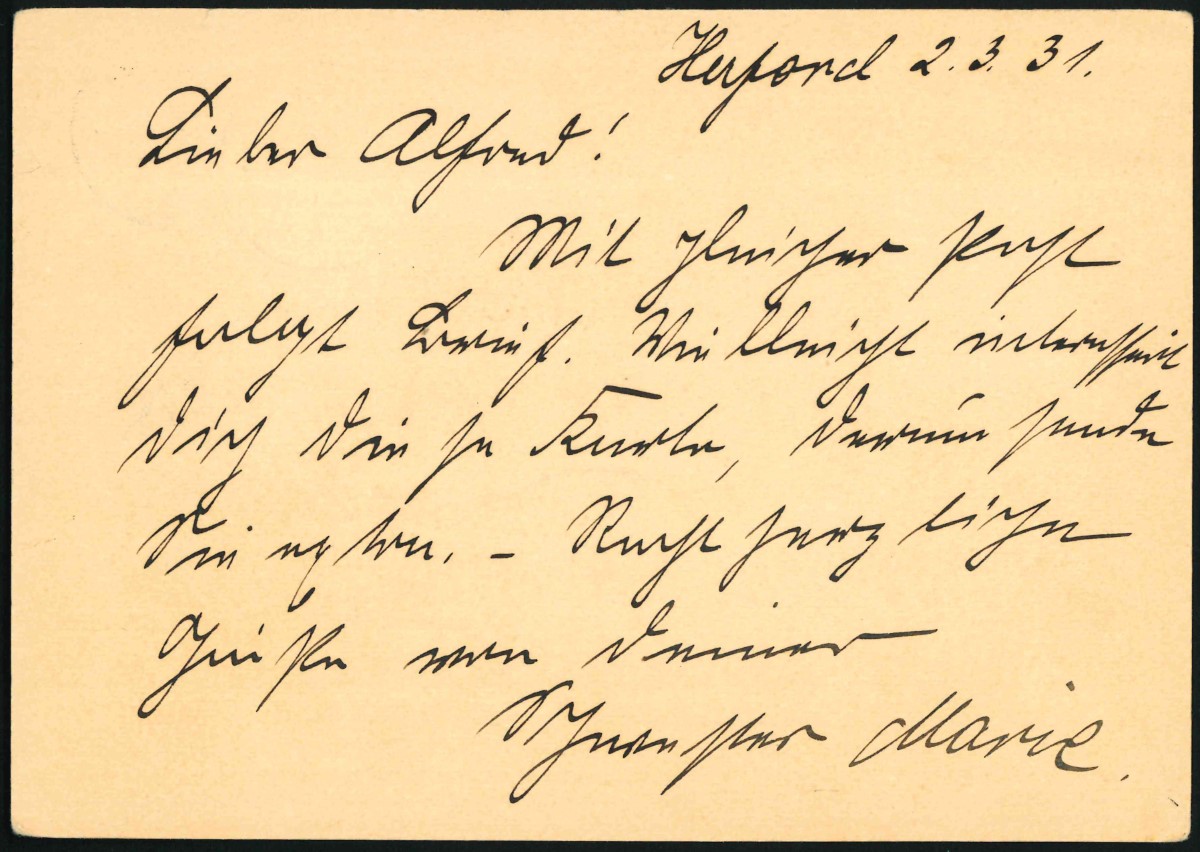 Herford 2.3.31.
Lieber Alfred!
Mit gleicher Post
folgt Brief. Vielleicht interessiert
Dich diese Karte, darum sende
Sie extra. – Recht herzliche
Grüße von Deiner
Schwester Marie.